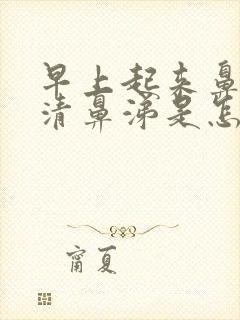 早上起来鼻
清鼻涕是怎
甯夏